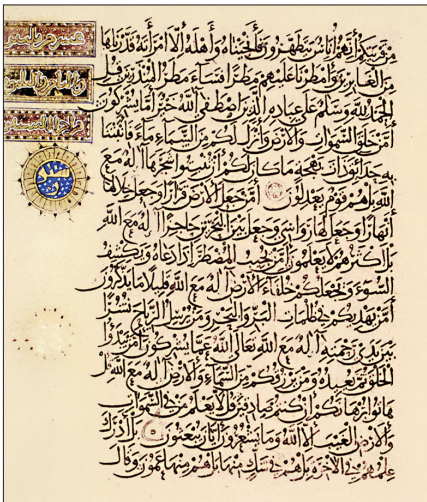 مِن قَرْيَتِكُمْ إِنَّهُمْ أُنَاسٌ يَتَطَهَّرُونَ فَأَنْجَيْنَاهُ وَأَهْلَهُ إِلَّا امْرَأَتَهُ قَدَّرْنَاهَا
مِنَ الْغَابِرِينَ وَأَمْطَرْنَا عَلَيْهِمْ مَطَرًا فَسَاءَ مَطَرُ الْمُنْذَرِينَ قُلِ
الْحَمْدُ لِلَّهِ وَسَلَامٌ عَلَى عِبَادِهِ الَّذِينَ اصْطَفَى آللَّهُ خَيْرٌ أَمَّا يُشْرِكُونَ
أَمَّنْ خَلَقَ السَّمَوَاتِ وَالْأَرْضَ وَأَنْزَلَ لَكُمْ مِنَ السَّمَاءِ مَاءً فَأَنْبَتْنَا
بِهِ حَدَائِقَ ذَاتَ بَهْجَةٍ مَا كَانَ لَكُمْ أَنْ تُنْبِتُوا شَجَرَهَا أَإِلَهٌ مَعَ
اللَّهِ بَلْ هُمْ قَوْمٌ يَعْدِلُونَ أَمَّنْ جَعَلَ الْأَرْضَ قَرَارًا وَجَعَلَ خِلَالَهَا
أَنْهَارًا وَجَعَلَ لَهَا رَوَاسِيَ وَجَعَلَ بَيْنَ الْبَحْرَيْنِ حَاجِزًا أَإِلَهٌ مَعَ اللَّهِ
بَلْ أَكْثَرُهُمْ لَا يَعْلَمُونَ أَمَّنْ يُجِيبُ الْمُضْطَرَّ إِذَا دَعَاهُ وَيَكْشِفُ
السُّوءَ وَيَجْعَلُكُمْ خُلَفَاءَ الْأَرْضِ أَإِلَهٌ مَعَ اللَّهِ قَلِيلًا مَا تَذَكَّرُونَ
أَمَّنْ يَهْدِيكُمْ فِي ظُلُمَاتِ الْبَرِّ وَالْبَحْرِ وَمَنْ يُرْسِلُ الرِّيَاحَ نُشُرًا
بَيْنَ يَدَيْ رَحْمَتِهِ أَإِلَهٌ مَعَ اللَّهِ تَعَالَى اللَّهُ عَمَّا يُشْرِكُونَ أَمَّنْ يَبْدَؤُا
الْخَلْقَ ثُمَّ يُعِيدُهُ وَمَنْ يَرْزُقُكُمْ مِنَ السَّمَاءِ وَالْأَرْضِ أَإِلَهٌ مَعَ اللَّهِ قُلْ
هَاتُوا بُرْهَانَكُمْ إِنْ كُنْتُمْ صَادِقِينَ قُلْ لَا يَعْلَمُ مَنْ فِي السَّمَوَاتِ
وَالْأَرْضِ الْغَيْبَ إِلَّا اللَّهُ وَمَا يَشْعُرُونَ أَيَّانَ يُبْعَثُونَ بَلِ ادَّارَكَ
عِلْمُهُمْ فِي الْآخِرَةِ بَلْ هُمْ فِي شَكٍّ مِنْهَا بَلْ هُمْ مِنْهَا عَمُونَ وَقَالَ